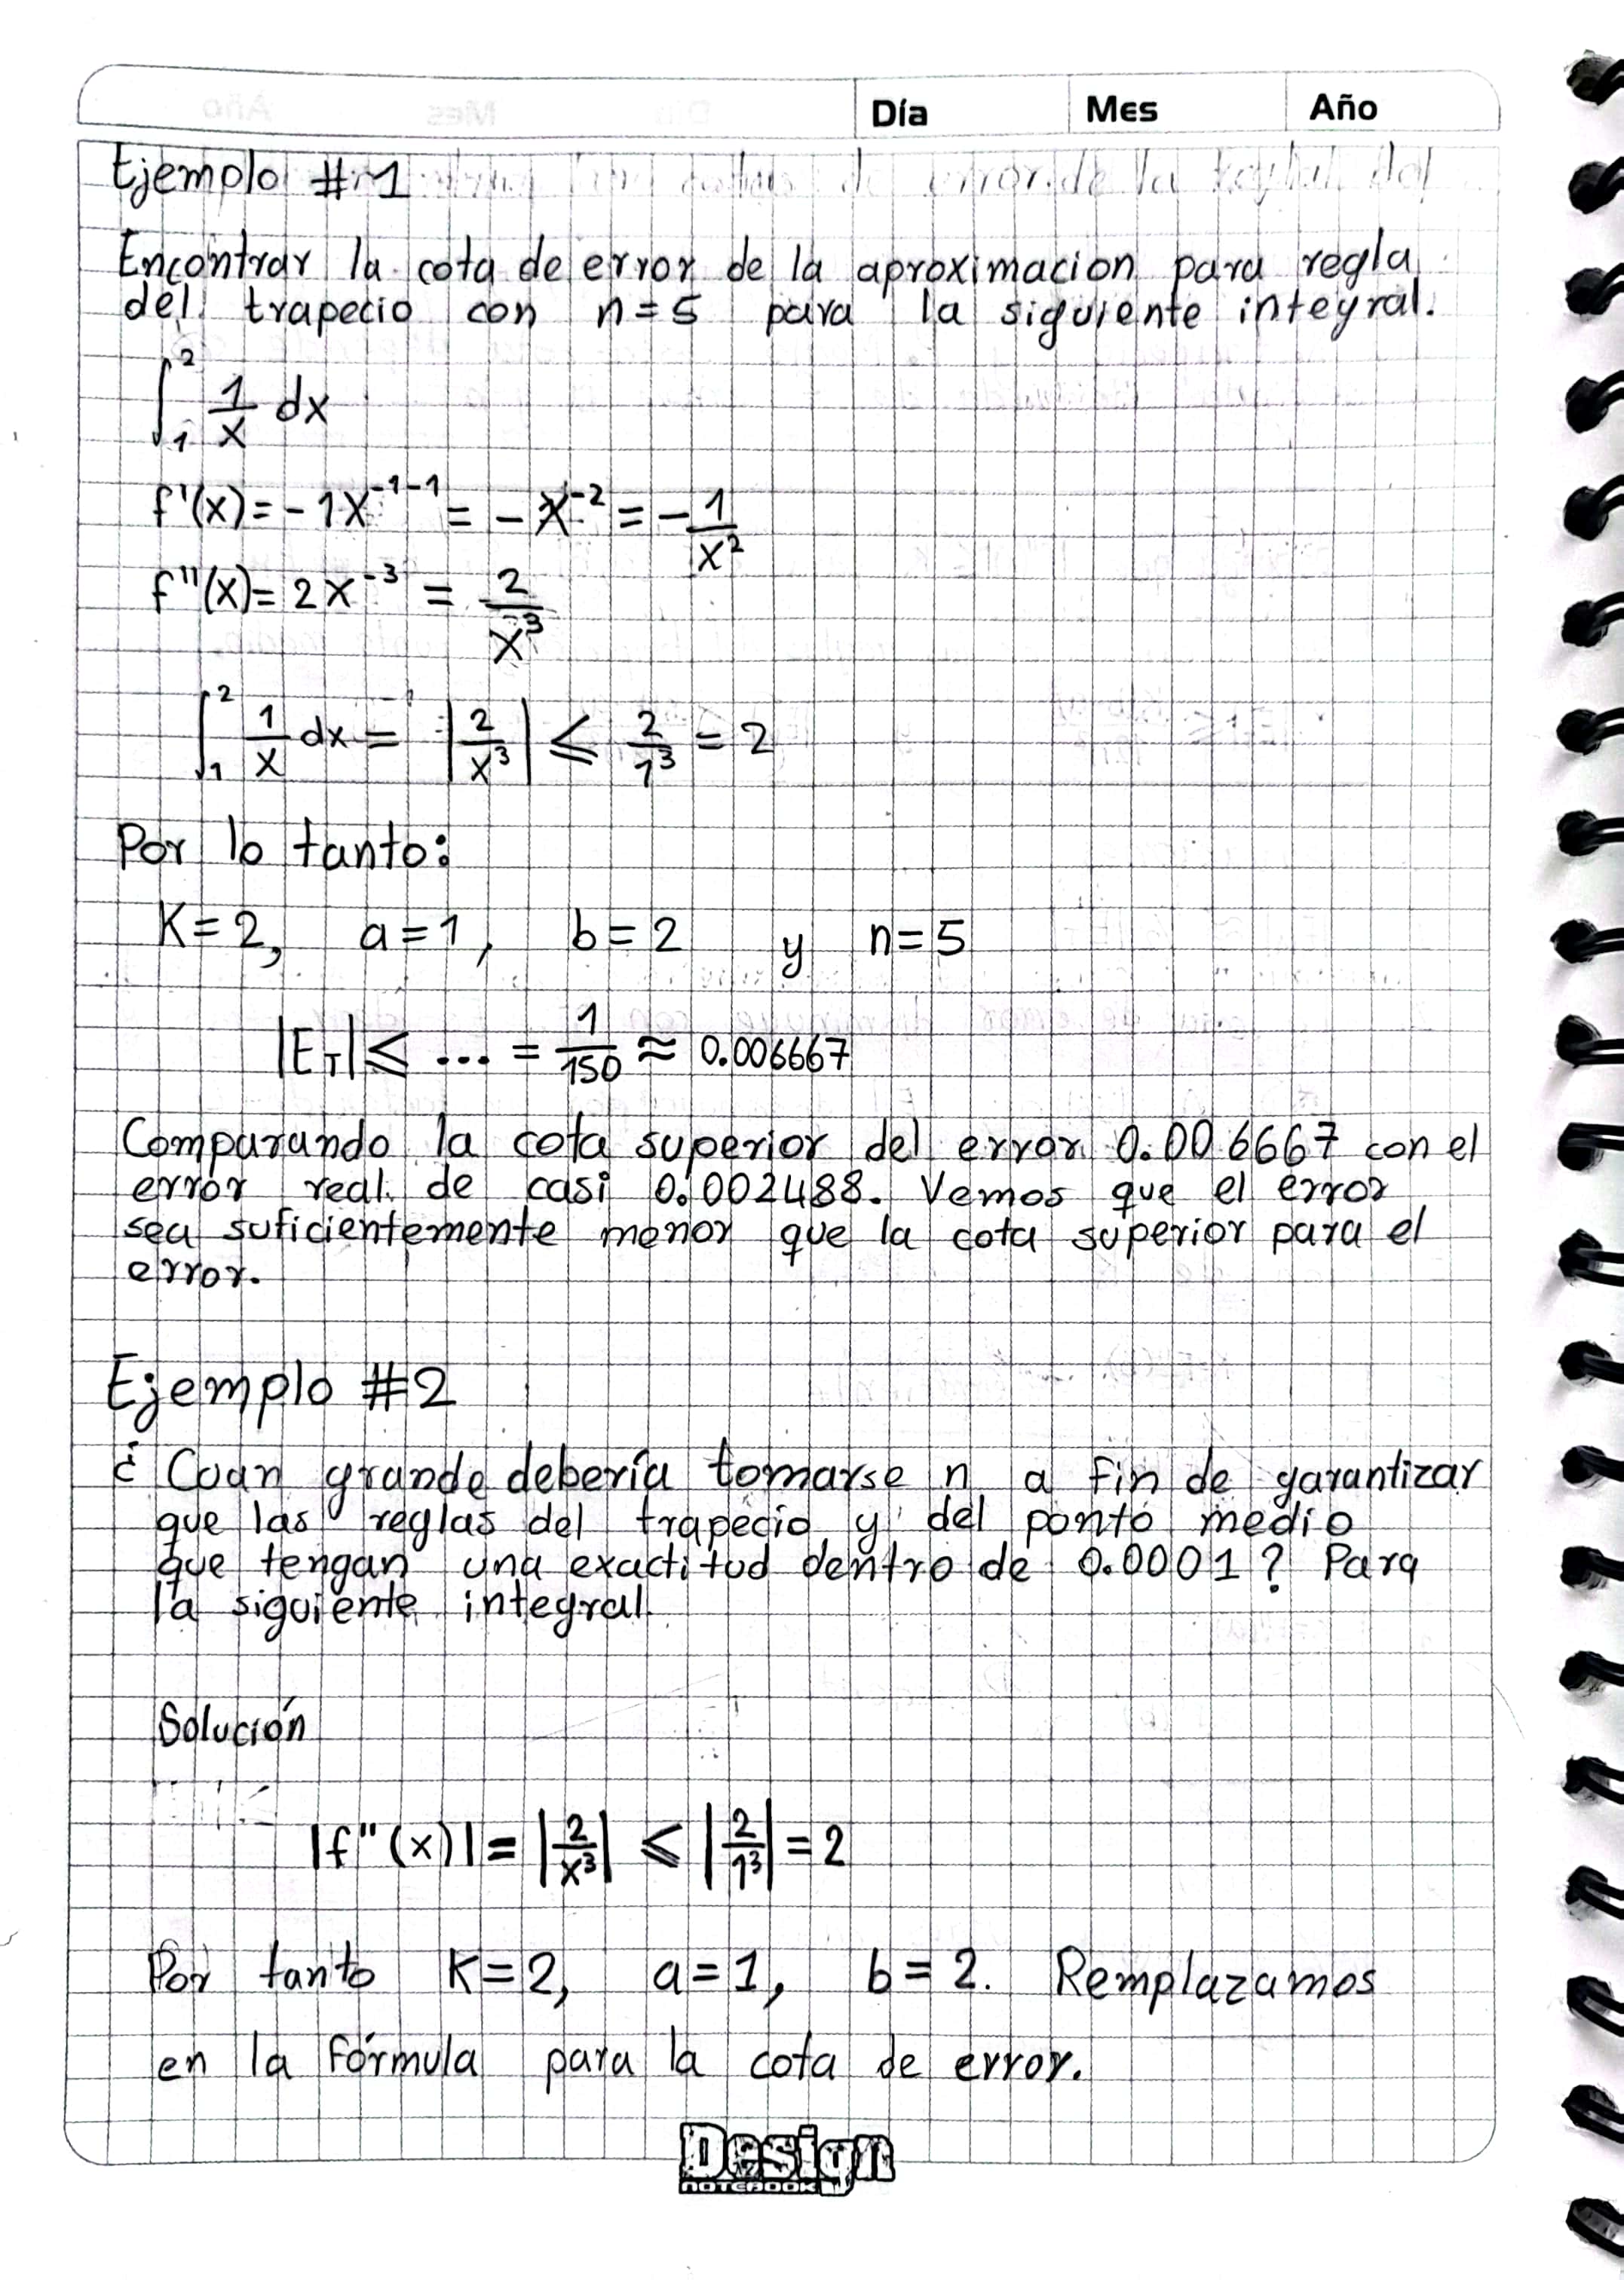 Día Mes Año
Ejemplo #1
Encontrar la cota de error de la aproximacion para regla
del trapecio con n=5 para la siguiente integral.
∫₁² 1/x dx
f'(x) = -1x⁻¹⁻¹ = -x⁻² = -1/x²
f''(x) = 2x⁻³ = 2/x³
∫₁² 1/x dx = |2/x³| ≤ 2/1³ = 2
Por lo tanto:
K=2, a=1, b=2 y n=5
|E_T| ≤ ... = 1/150 ≈ 0.006667
Comparando la cota superior del error 0.006667 con el
error real de casi 0.002488. Vemos que el error
sea suficientemente menor que la cota superior para el
error.
Ejemplo #2
¿Cuan grande debería tomarse n a fin de garantizar
que las reglas del trapecio y del ponto medio
que tengan una exactitud dentro de 0.0001? Para
la siguiente integral.
Solución
|f''(x)| = |2/x³| ≤ |2/1³| = 2
Por tanto K=2, a=1, b=2. Remplazamos
en la fórmula para la cota de error.
Design
NOTEBOOK